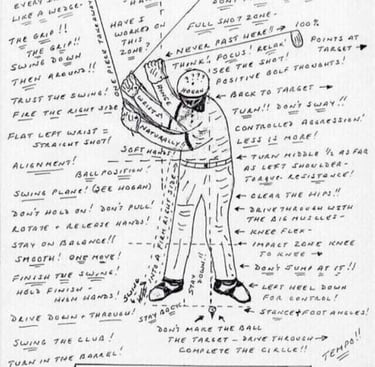 EVERY
LIKE A WEDGE-
THE GRIP!!
THE GRIP!!
SWING DOWN
THEN AROUND!!
TRUST THE SWING!
FIRE THE RIGHT SIDE
FLAT LEFT WRIST =
STRAIGHT SHOT!
ALIGNMENT!
BALL POSITION!
SWING PLANE! (SEE HOGAN)
DON'T HOLD ON! DON'T PULL!
ROTATE + RELEASE HANDS!
STAY ON BALANCE!!
SMOOTH! ONE MOVE!
FINISH THE SWING!
HOLD FINISH -
HIGH HANDS!
DRIVE DOWN + THROUGH!
SWING THE CLUB!
TURN IN THE BARREL!
ONE PIECE TAKEAWAY
HAVE I
WORKED ON
THIS ZONE?
HINGE
WRISTS
NATURALLY!
SOFT HANDS!
INTO A FIRM RIGHT SIDE
SLING
STAY BACK
HOGAN
STAY
DOWN!!
FULL SHOT ZONE-
NEVER PAST HERE!!
100%
THINK! FOCUS! RELAX!
SEE THE SHOT!
POSITIVE GOLF THOUGHTS!
POINTS
AT
TARGET
BACK TO TARGET
TURN!! DON'T SWAY!!
CONTROLLED AGGRESSION!
LESS IS MORE!
TURN MIDDLE ½ AS FAR
AS LEFT SHOULDER-
TORQUE. RESISTANCE!
CLEAR THE HIPS!!
DRIVE THROUGH WITH
THE BIG MUSCLES-
KNEE FLEX-
IMPACT ZONE KNEE
TO KNEE
DON'T JUMP AT IT!!
LEFT HEEL DOWN
FOR CONTROL!
STANCE + FOOT ANGLES!
DON'T MAKE THE BALL
THE TARGET - DRIVE THROUGH
COMPLETE THE CIRCLE!!
TEMPO!!